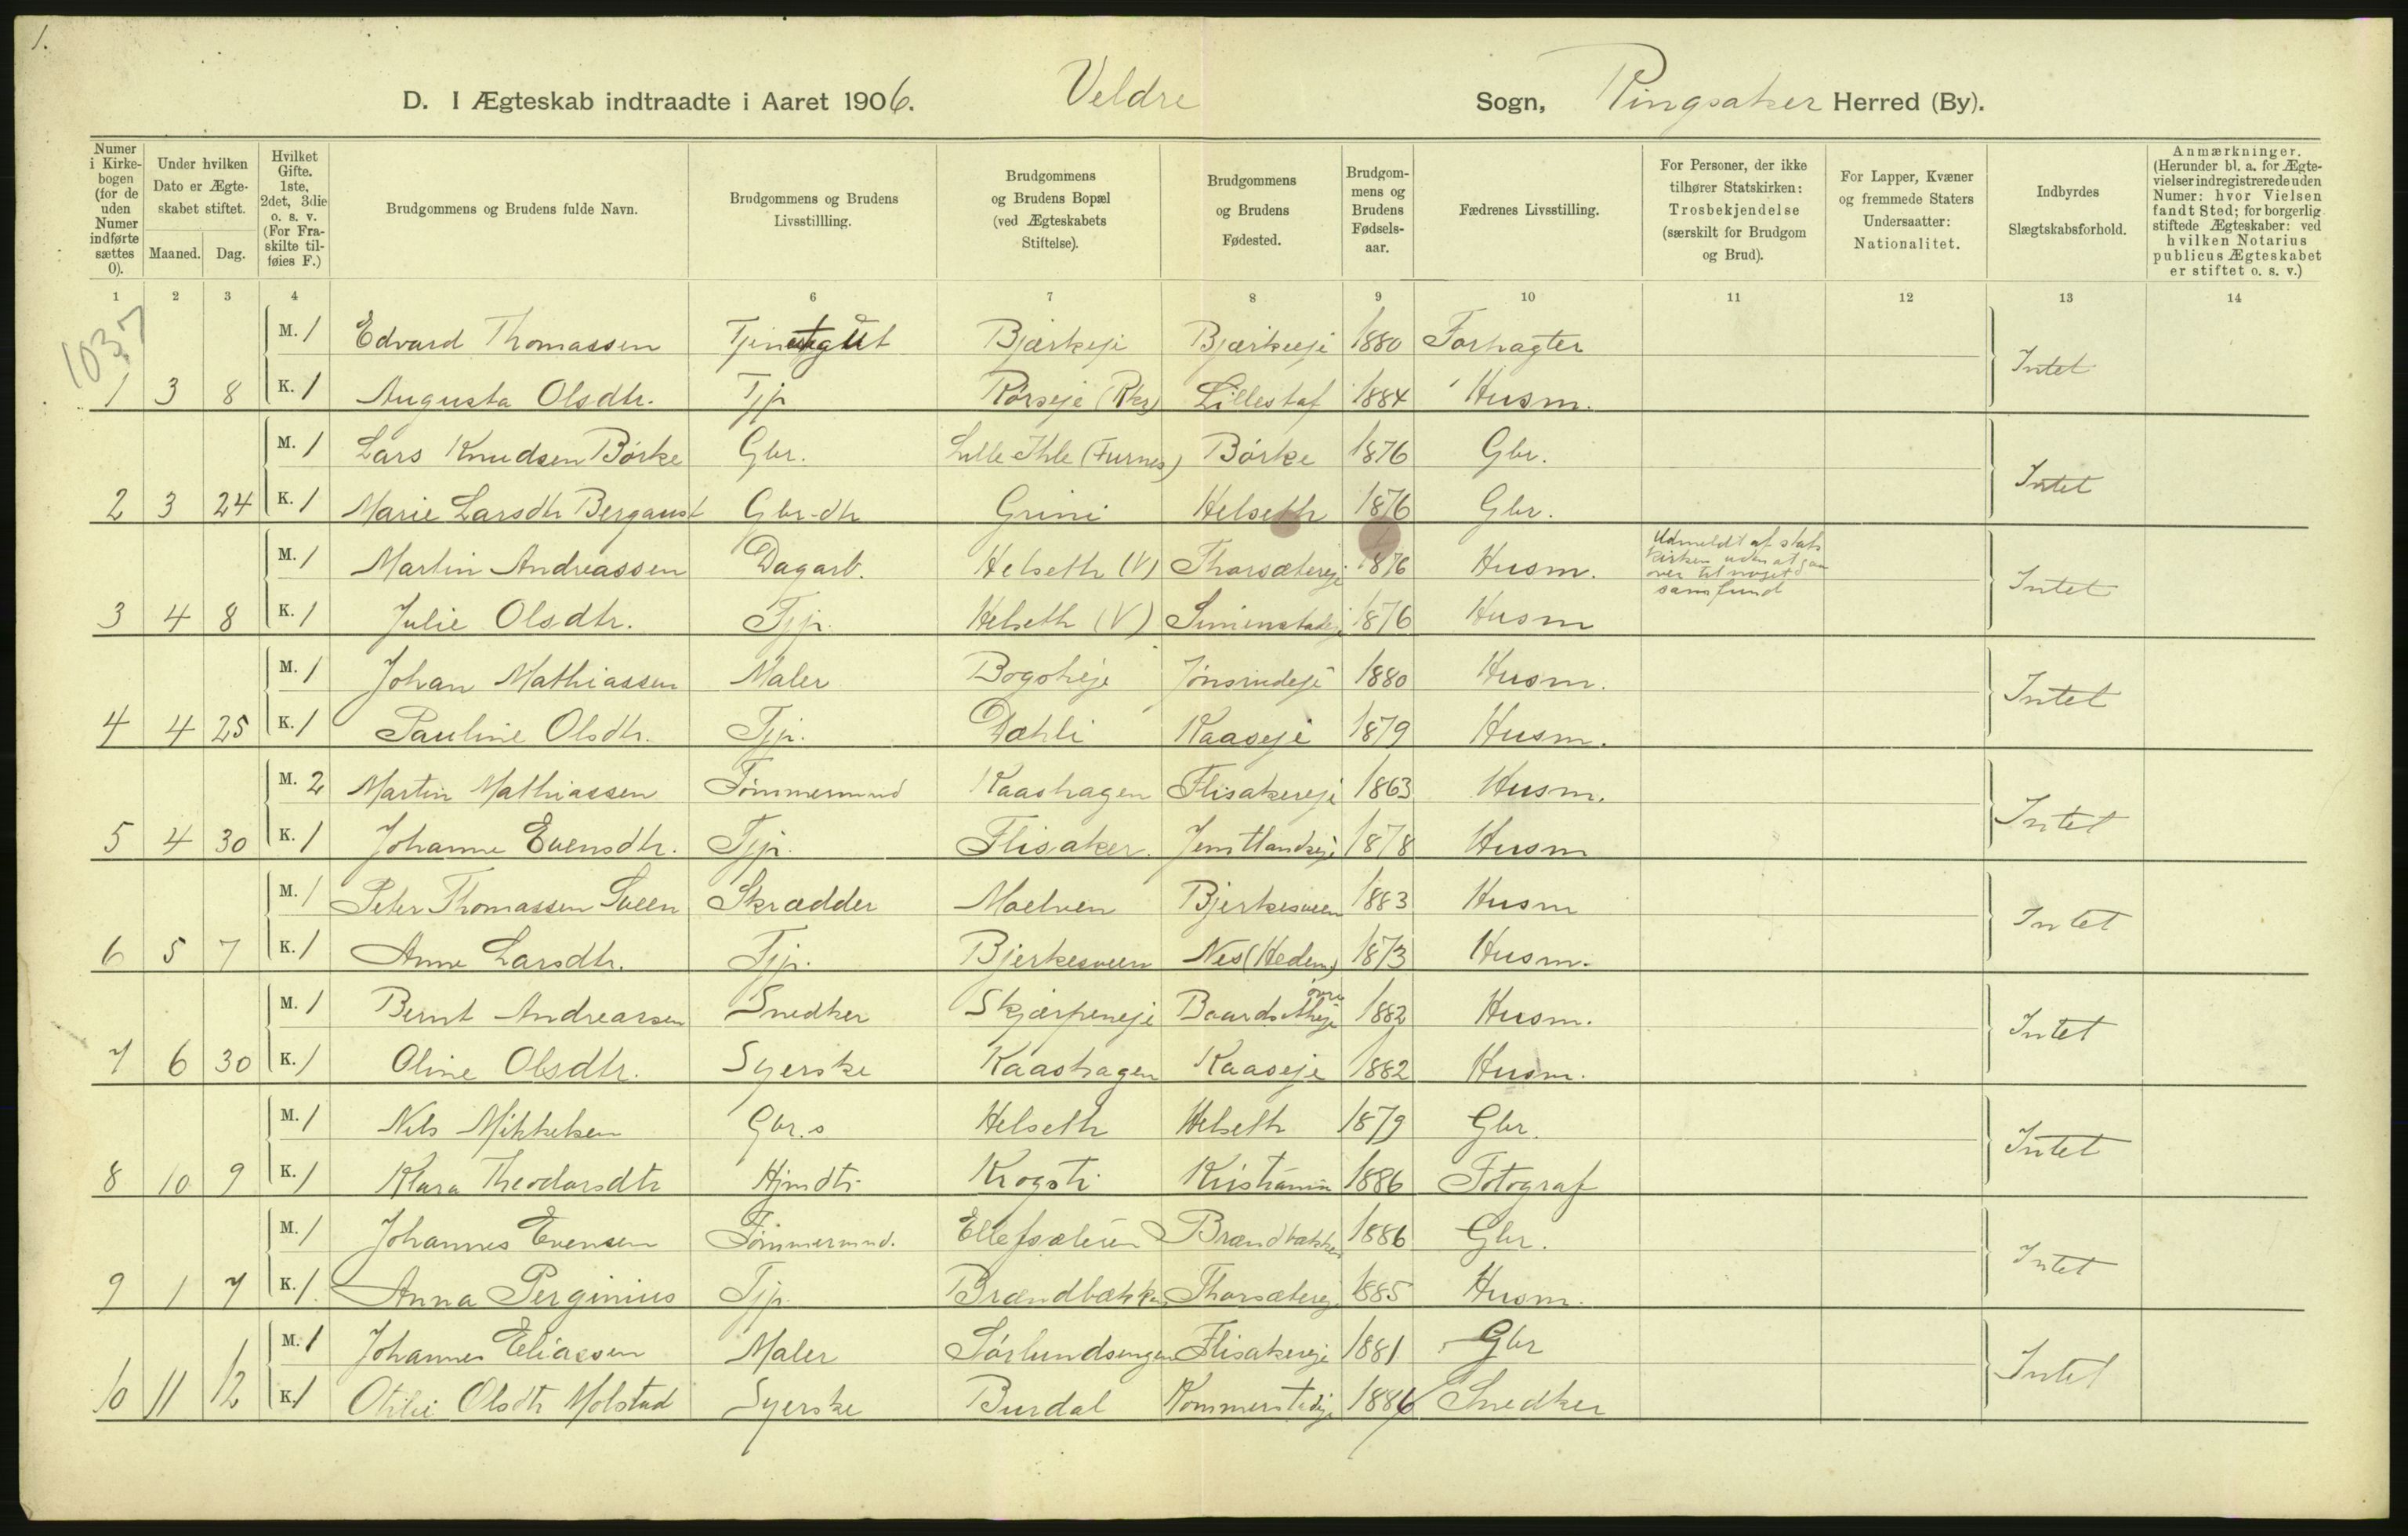 1.
D. I Ægteskab indtraadte i Aaret 1906. Veldre Sogn, Ringsaker Herred (By).
Numer i Kirkebogen (for de uden Numer indførte sættes 0).
Under hvilken Dato er Ægteskabet stiftet.
Maaned. Dag.
Hvilket Gifte. 1ste, 2det, 3die o. s. v. (For Fraskilte tilføies F.)
Brudgommens og Brudens fulde Navn.
Brudgommens og Brudens Livsstillling.
Brudgommens og Brudens Bopæl (ved Ægteskabets Stiftelse).
Brudgommens og Brudens Fødested.
Brudgommens og Brudens Fødselsaar.
Fædrenes Livsstilling.
For Personer, der ikke tilhører Statskirken: Trosbekjendelse (særskilt for Brudgom og Brud).
For Lapper, Kvæner og fremmede Staters Undersaatter: Nationalitet.
Indbyrdes Slægtskabsforhold.
Anmærkninger. (Herunder bl. a. for Ægtevielser indregistrerede uden Numer: hvor Vielsen fandt Sted; for borgerlig stiftede Ægteskaber: ved hvilken Notarius publicus Ægteskabet er stiftet o. s. v.)
1 2 3 4 6 7 8 9 10 11 12 13 14
1037
M. 1 Edvard Thomassen Bjærkeje Bjærkeeje 1880 Forpagter
Intet
1 3 8 K. 1 Augusta Olsdtr. Tjp Rørseje (Rks) Lillestaf 1884 Husm.
M. 1 Lars Knudsen Børke Gbr. Lille Ihle (Furnes) Børke 1876 Gbr.
Intet
2 3 24 K. 1 Marie Larsdtr Bergaust Gbr-dtr Grini Helseth 1876 Gbr.
M. 1 Martin Andreassen Dagarb. Helseth (V) Thorsætereje 1876 Husm. Udmeldt af stats kirken uden at gaa over til noget samfund
Intet
3 4 8 K. 1 Julie Olsdtr. Tjp. Helseth (V) Simenstadeje 1876 Husm
M. 1 Johan Mathiassen Maler Bogoheje Jønsrudeje 1880 Husm.
Intet
4 4 25 K. 1 Pauline Olsdtr. Tjp. Dæhli Kaaseje 1879 Husm.
M. 2 Martin Mathiassen Tømmermand Kaashagen Flisakereje 1863 Husm.
Intet
5 4 30 K. 1 Johanne Evensdtr. Tjp. Flisaker. Jemtlandseje 1878 Husm
M. 1 Peter Thomassen Sveen Skrædder Moelven Bjerkesveen 1883 Husm
Intet
6 5 7 K. 1 Anne Larsdtr. Tjp. Bjerkesveen Nes (Hedem) 1873 Husm.
M. 1 Bernt Andreassen Snedker Skjærpeneje Baardsetheje øvre 1882 Husm.
Intet
7 6 30 K. 1 Oline Olsdtr. Syerske Kaashagen Kaaseje 1882 Husm.
M. 1 Nils Mikkelsen Gbr.s Helseth Helseth 1879 Gbr.
Intet
8 10 9 K. 1 Klara Theodorsdtr Hjmdtr Krogsti Kristiania 1886 Fotograf
M. 1 Johannes Evensen Tømmermnd. Ellefsæteren Brændbakken 1886 Gbr.
Intet
9 1 7 K. 1. Anna Perginius Tjp. Brændbakken Thorsætereje 1885 Husm.
M. 1 Johannes Eliassen Maler Sørlundsengen Flisakereje 1881 Gbr
Intet
10 11 12 K. 1 Otilie Olsdtr Molstad Syerske Burdal Kommerstadeje 1886 Snedker